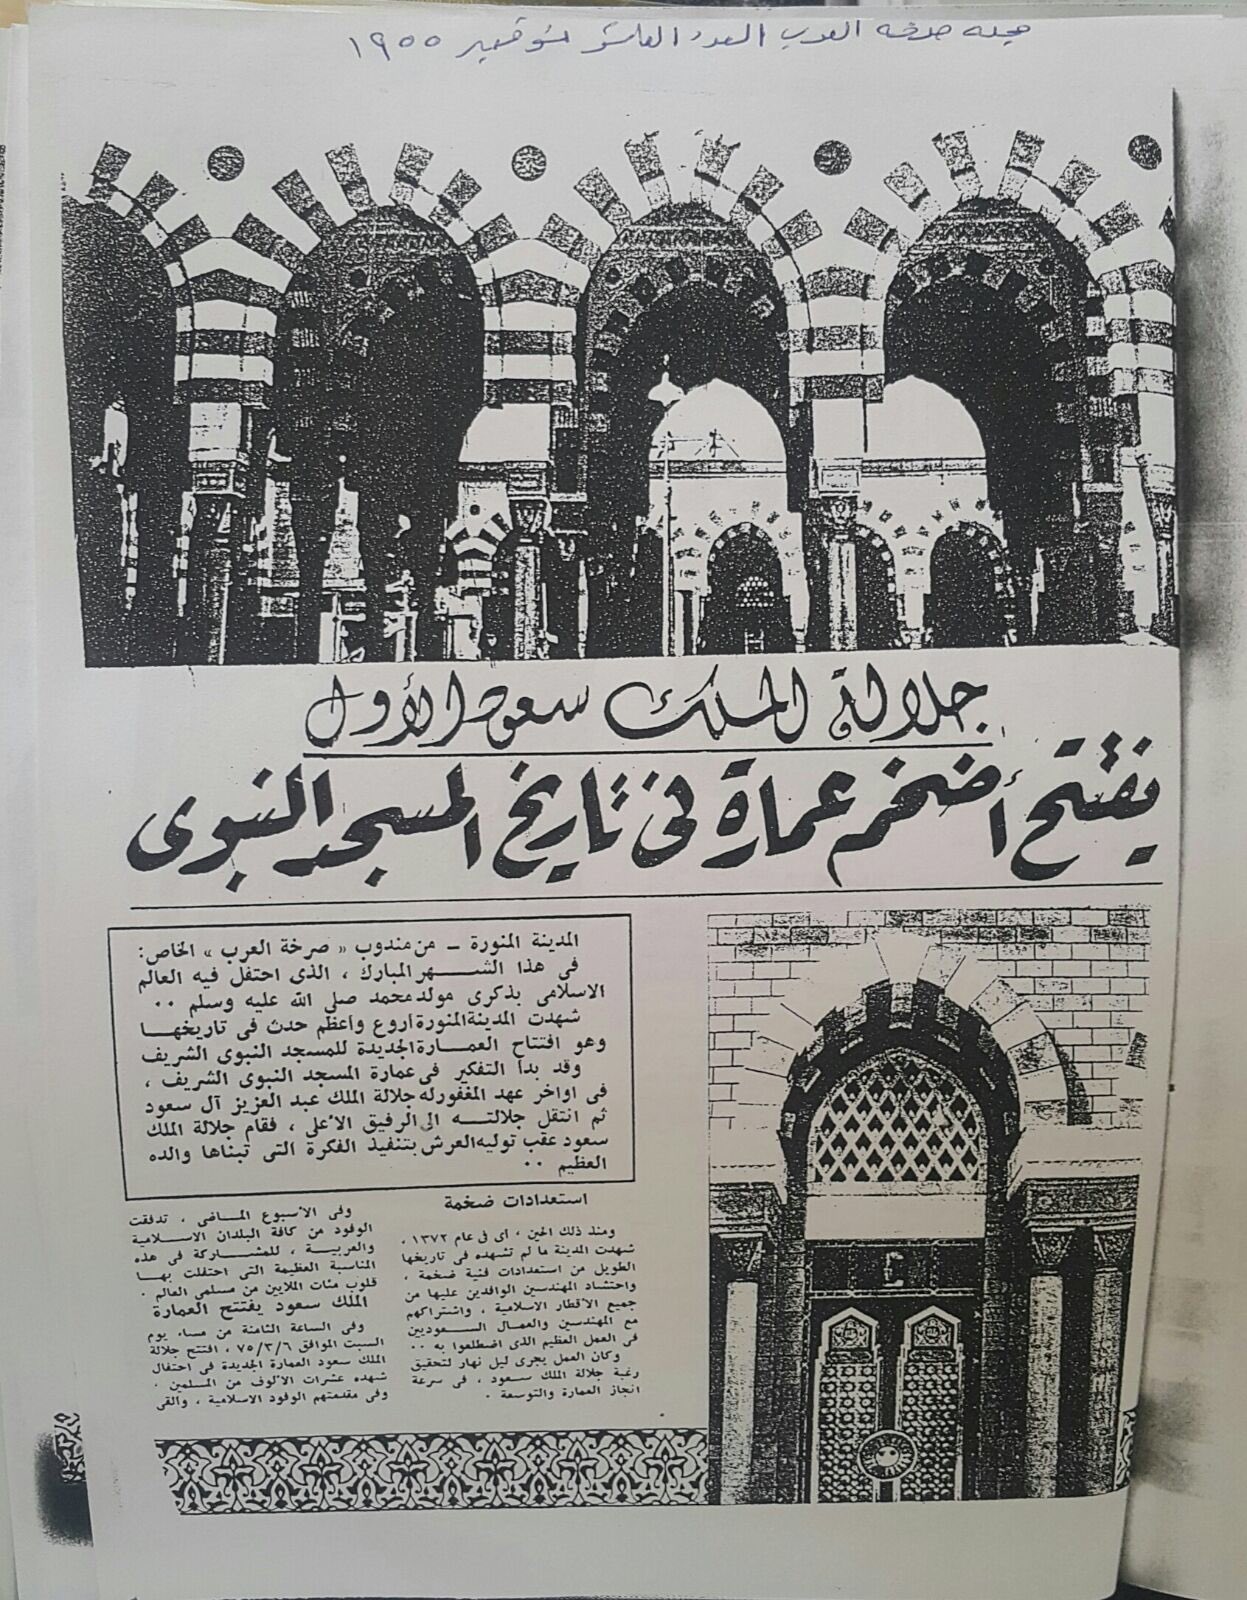 مجلة صرخة العرب العدد العاشر نوفمبر ١٩٥٥
جلالة الملك سعود الأول
يفتتح أضخم عمارة فى تاريخ المسجد النبوى
المدينة المنورة ــ من مندوب « صرخة العرب » الخاص:
فى هذا الشهر المبارك ، الذى احتفل فيه العالم
الاسلامى بذكرى مولد محمد صلى الله عليه وسلم ٠٠
شهدت المدينة المنورة أروع وأعظم حدث فى تاريخها
وهو افتتاح العمارة الجديدة للمسجد النبوى الشريف
وقد بدأ التفكير فى عمارة المسجد النبوى الشريف ،
فى اواخر عهد المغفور له جلالة الملك عبد العزيز آل سعود
ثم انتقل جلالته الى الرفيق الأعلى ، فقام جلالة الملك
سعود عقب توليه العرش بتنفيذ الفكرة التى تبناها والده
العظيم ٠٠
استعدادات ضخمة
ومنذ ذلك الحين ، أى فى عام ١٣٧٢ ،
شهدت المدينة ما لم تشهده فى تاريخها
الطويل من استعدادات فنية ضخمة ،
واحتشاد المهندسين الوافدين عليها من
جميع الأقطار الاسلامية ، واشتراكهم
مع المهندسين والعمال السعوديين
فى العمل العظيم الذى اضطلعوا به ٠٠
وكان العمل يجرى ليل نهار لتحقيق
رغبة جلالة الملك سعود ، فى سرعة
انجاز العمارة والتوسعة .
وفى الأسبوع الماضى ، تدفقت
الوفود من كافة البلدان الاسلامية
والعربية ، للمشاركة فى هذه
المناسبة العظيمة التى احتفلت بها
قلوب مئات الملايين من مسلمى العالم .
الملك سعود يفتتح العمارة
وفى الساعة الثامنة من مساء يوم
السبت الموافق ٧٥/٣/٦ ، افتتح جلالة
الملك سعود العمارة الجديدة فى احتفال
شهده عشرات الألوف من المسلمين ،
وفى مقدمتهم الوفود الاسلامية ، والقى